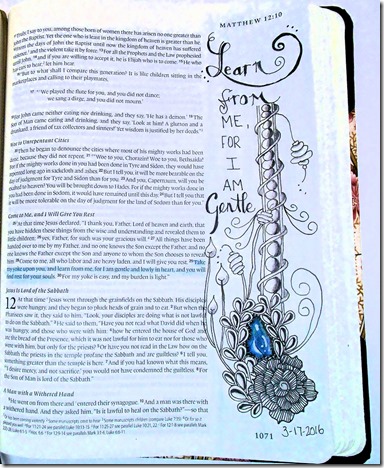 MATTHEW 12:10
I truly, I say to you, among those born of women there has arisen no one greater
the Baptist. Yet the one who is least in the kingdom of heaven is greater than he.
the days of John the Baptist until now the kingdom of heaven has suffered
violence, and the violent take it by force. For all the Prophets and the Law prophesied
until John, and if you are willing to accept it, he is Elijah who is to come. He who
has ears to hear, let him hear.
"But to what shall I compare this generation? It is like children sitting in the
marketplaces and calling to their playmates,
"'We played the flute for you, and you did not dance;
we sang a dirge, and you did not mourn.'
For John came neither eating nor drinking, and they say, 'He has a demon.' The
Son of Man came eating and drinking, and they say, 'Look at him! A glutton and a
drunkard, a friend of tax collectors and sinners!' Yet wisdom is justified by her deeds."
Woe to Unrepentant Cities
Then he began to denounce the cities where most of his mighty works had been
done, because they did not repent. "Woe to you, Chorazin! Woe to you, Bethsaida!
For if the mighty works done in you had been done in Tyre and Sidon, they would have
repented long ago in sackcloth and ashes. But I tell you, it will be more bearable on the
day of judgment for Tyre and Sidon than for you. And you, Capernaum, will you be
exalted to heaven? You will be brought down to Hades. For if the mighty works done in
you had been done in Sodom, it would have remained until this day. But I tell you that
it will be more tolerable on the day of judgment for the land of Sodom than for you."
Come to Me, and I Will Give You Rest
At that time Jesus declared, "I thank you, Father, Lord of heaven and earth, that
you have hidden these things from the wise and understanding and revealed them to
little children; yes, Father, for such was your gracious will. All things have been
handed over to me by my Father, and no one knows the Son except the Father, and no
one knows the Father except the Son and anyone to whom the Son chooses to reveal
him. Come to me, all who labor and are heavy laden, and I will give you rest. Take
my yoke upon you, and learn from me, for I am gentle and lowly in heart, and you will
find rest for your souls. For my yoke is easy, and my burden is light."
Jesus Is Lord of the Sabbath
12 At that time Jesus went through the grainfields on the Sabbath. His disciples
were hungry, and they began to pluck heads of grain and to eat. But when the
Pharisees saw it, they said to him, "Look, your disciples are doing what is not lawful
to do on the Sabbath." He said to them, "Have you not read what David did when he
was hungry, and those who were with him: how he entered the house of God and
ate the bread of the Presence, which it was not lawful for him to eat nor for those who
were with him, but only for the priests? Or have you not read in the Law how on the
Sabbath the priests in the temple profane the Sabbath and are guiltless? I tell you,
something greater than the temple is here. And if you had known what this means,
'I desire mercy, and not sacrifice,' you would not have condemned the guiltless. For
the Son of Man is lord of the Sabbath."
A Man with a Withered Hand
He went on from there and entered their synagogue. And a man was there with
a withered hand. And they asked him, "Is it lawful to heal on the Sabbath?"—so that
1071
Learn
from
ME,
FOR
I
AM
Gentle
3-17-2016